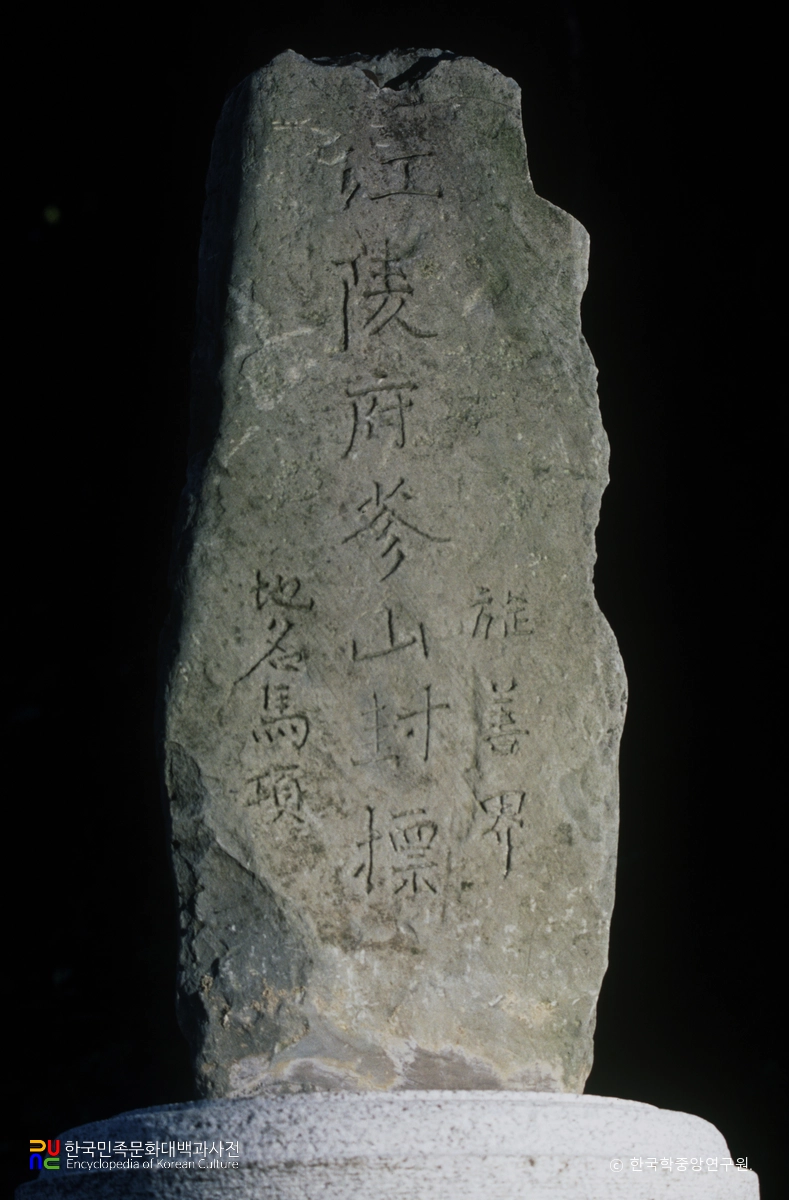 旌善界
江陵府蔘山封標
地名馬項
한국민족문화대백과사전
Encyclopedia of Korean Culture
ⓒ 한국학중앙연구원